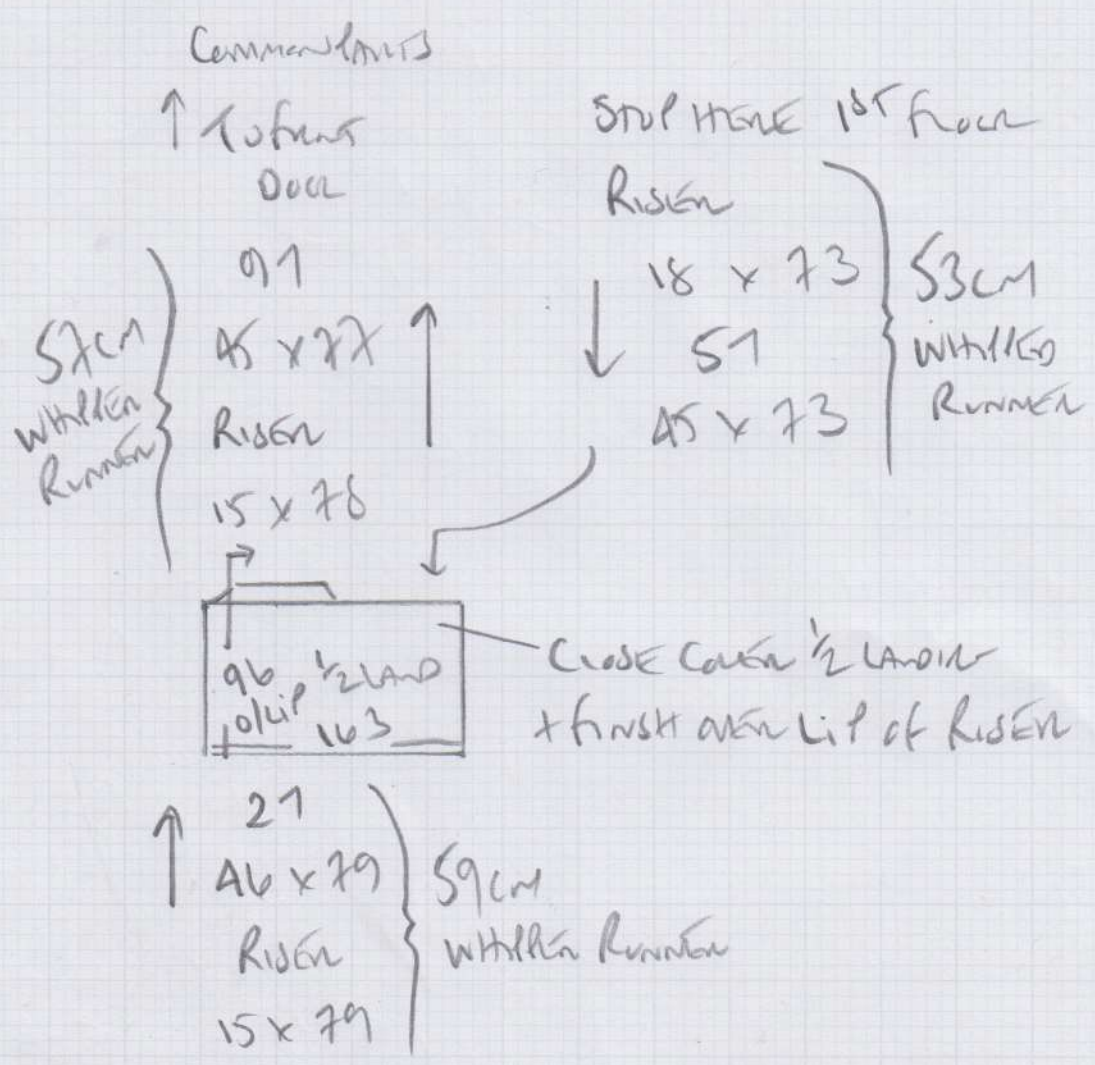 Common Parts
↑ To front
Door
91
45 x 77
Riser
15 x 78
57cm
Whipped
Runner
Stop Here 1st Floor
Riser
18 x 73
51
45 x 73
53cm
Whipped
Runner
96 1/2 Land
o/Lip 163
Close Cover 1/2 Landing
+ finish over Lip of Riser
21
46 x 79
Riser
15 x 79
59cm
Whipped Runner